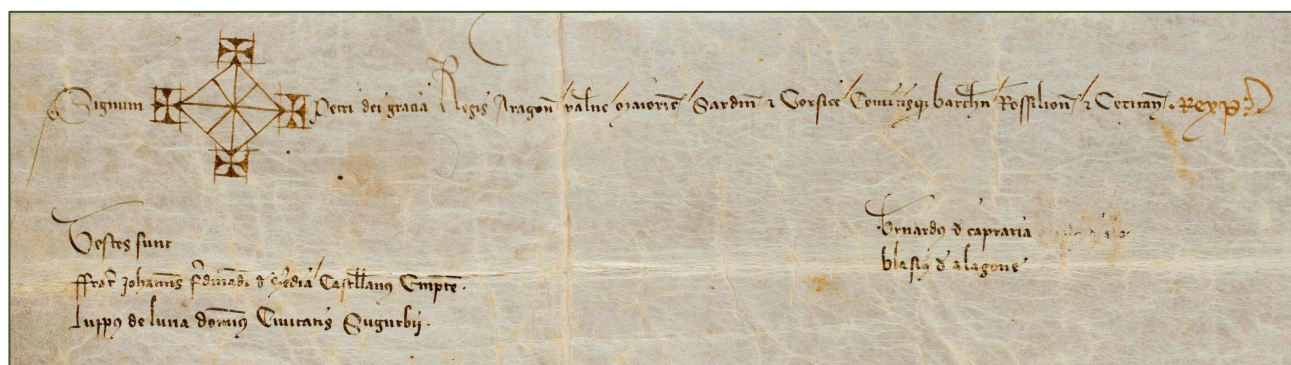 Signum Petri dei gracia Regis Aragon Valne Maioric Sardin & Corsice Comitisq barchn Rossilion & Ceritan. Rex p.
Testes sunt
ffrat Johannes fdinandi d Castellanus Emposte.
luppus de luna dominus Civitatis Sugurbii.
bernardus d capraria
blasius d alagone